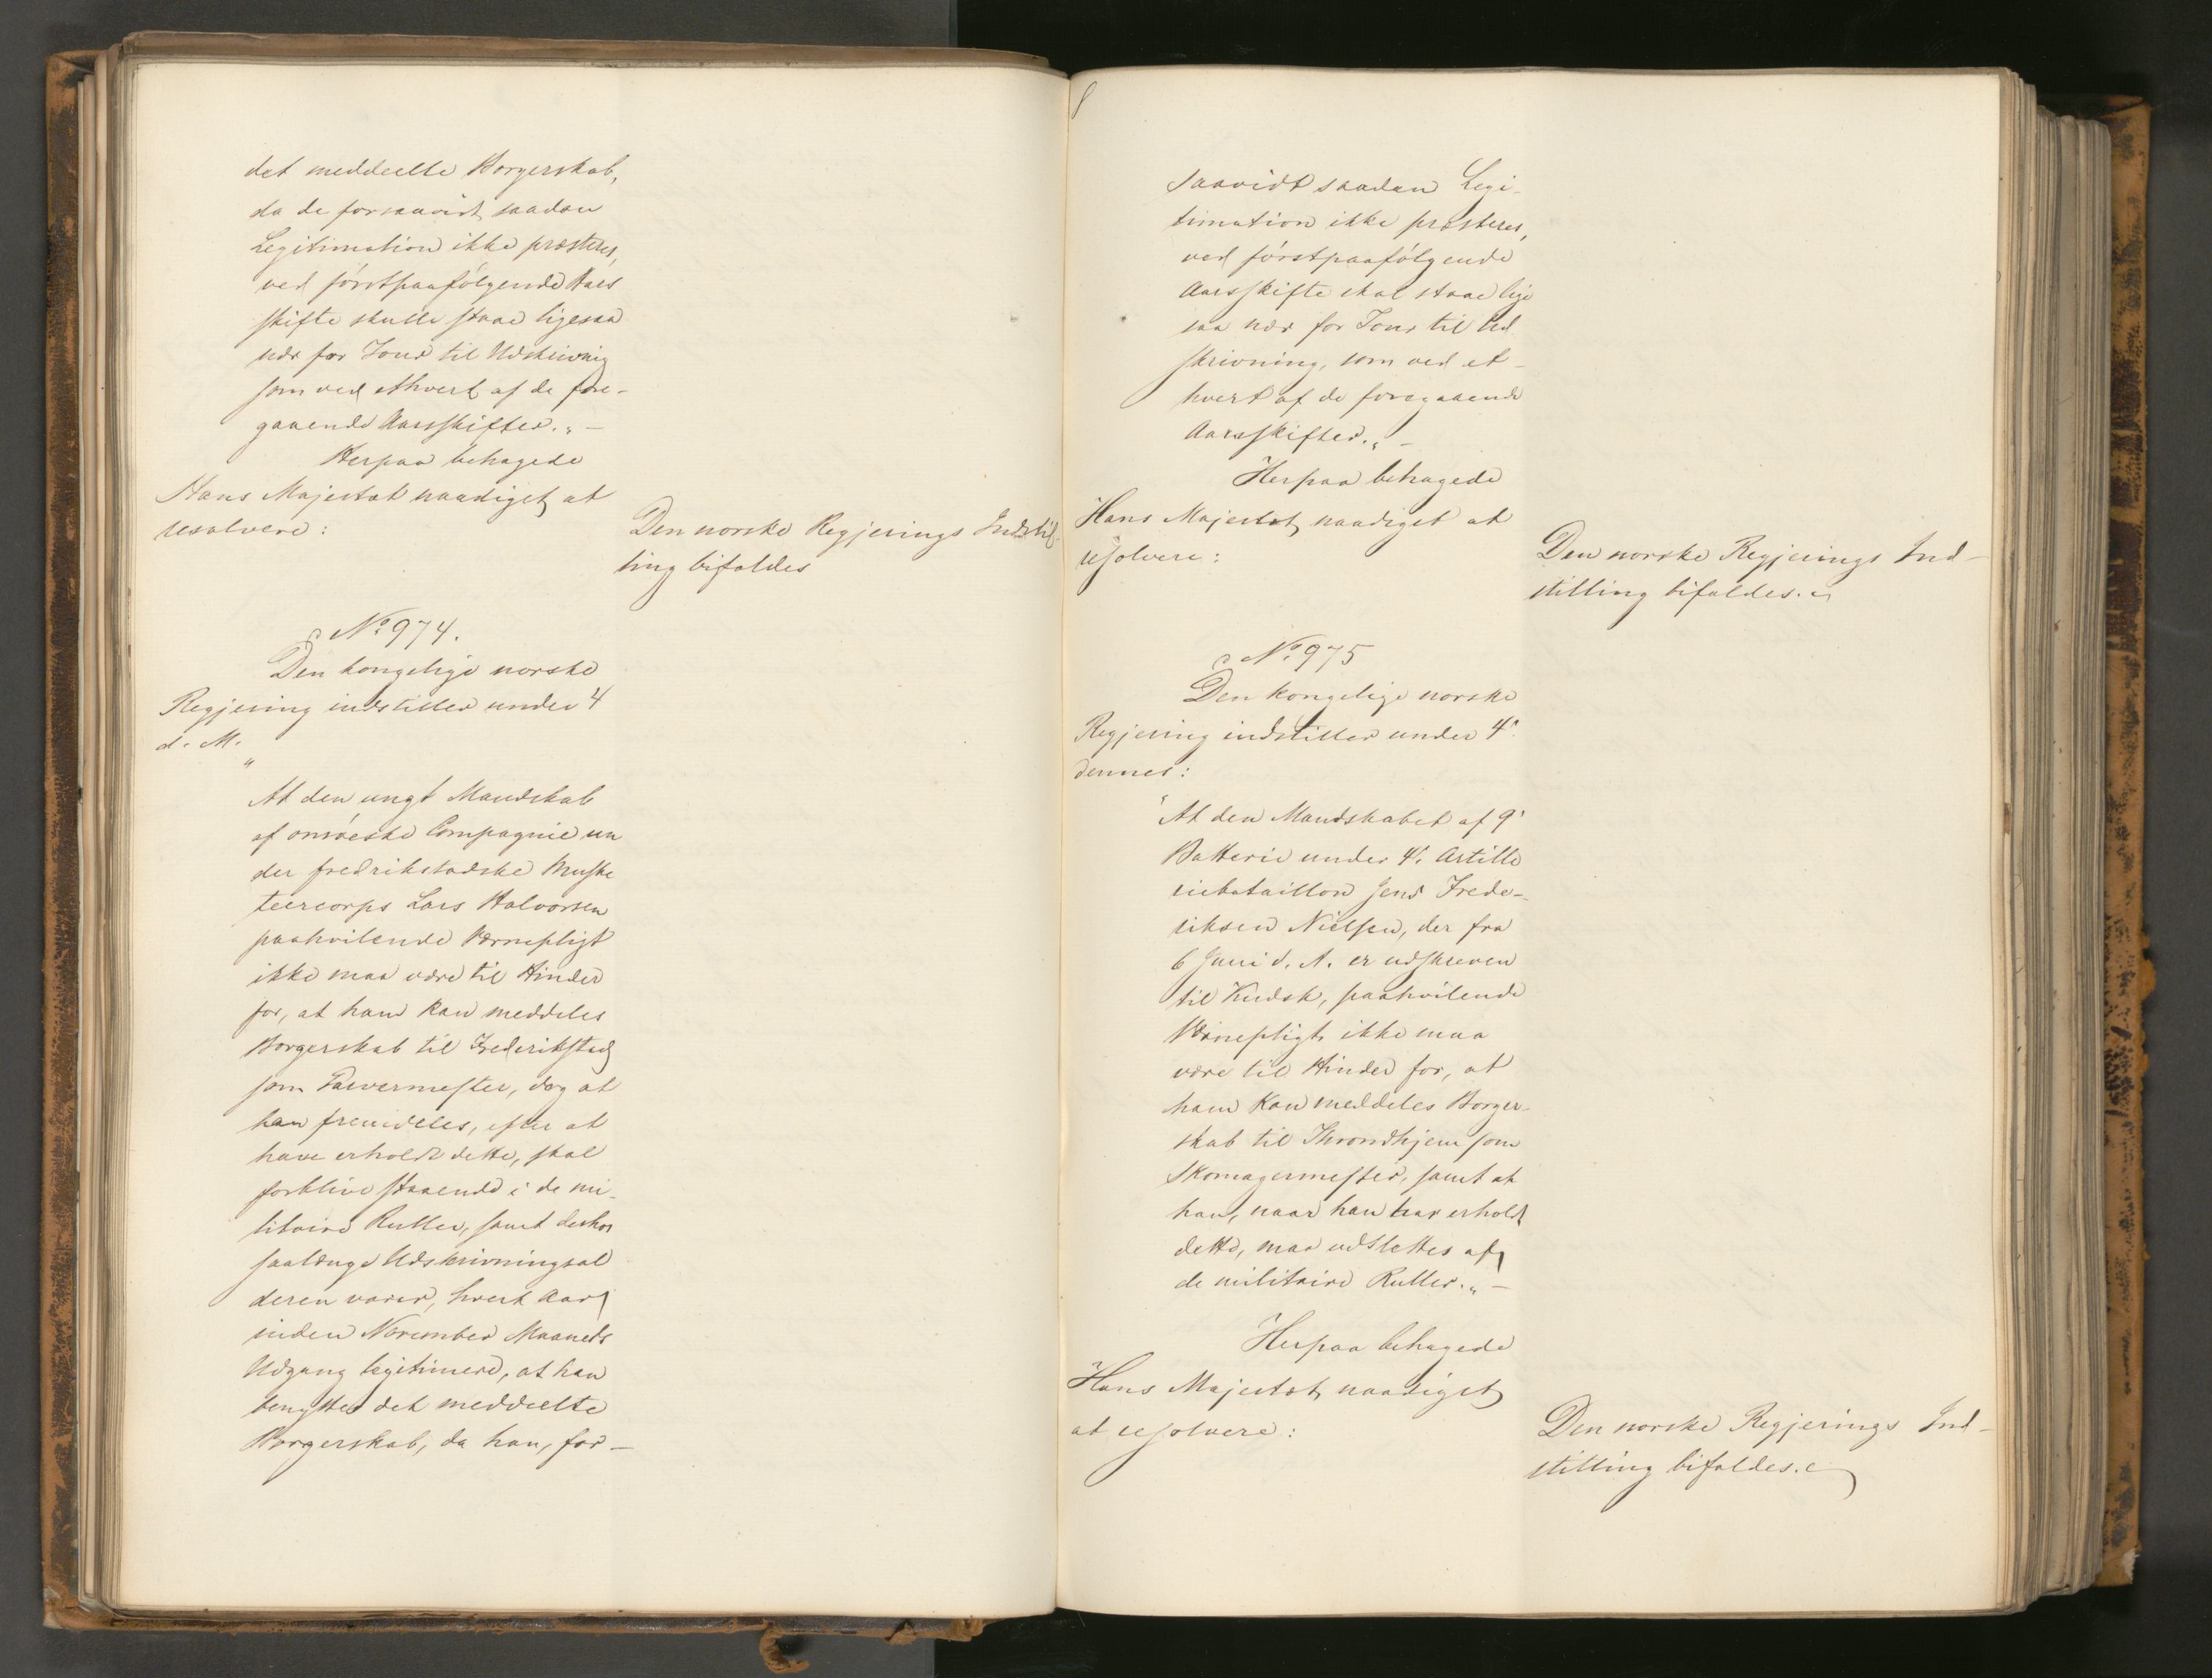 det meddeelte Borgerskab,
da de forsaavidt saadan
Legitimation ikke præsteres,
ved förstpaafölgende Aars
skifte skulle staae ligesaa
nær for Tour til Udskrivnig
som ved ethvert af de fore-
gaaende Aarsskifter." -
Herpaa behagede
Hans Majestæt naadigst at
resolvere:
Den norske Regjerings Indstil-
ling bifaldes
No 974.
Den kongelige norske
Regjering indstiller under 4
d. M.
"
At den ungt Mandskab
af onsöeske Compagnie un
der fredrikstadske Muske
teercorps Lars Halvorsen
paahvilende Værnepligt
ikke maa være til Hinder
for, at ham kan meddeles
Borgerskab til Frederikstad
som Farvermester, dog at
han fremdeles, efter at
have erholdt dette, skal
forblive staaende i de mi-
litaire Ruller, samt derhos
saalænge Udskrivningsal
deren varer, hvert Aar
inden November Maaneds
Udgang legitimere, at han
benytter det meddeelte
Borgerskab, da han, for-
8
saavidt saadan Legi-
timation ikke præsteres,
ved förstpaafölgende
Aarsskifte skal staae lige
saa nær for Tour til Ud
skrivning, som ved et-
hvert af de foregaaende
Aarsskifter." -
Herpaa behagede
Hans Majestæt naadigst at
resolvere:
Den norske Regjerings Ind-
stilling bifaldes.
No 975
Den kongelige norske
Regjering indstiller under 4.
dennes:
"At den Mandskabet af 9'
Batterie under 4. Artille
riebataillon Jens Frede-
riksen Nielsen, der fra
6 Juni d. A. er udskreven
til Kudsk, paahvilende
Værnepligt ikke maa
være til Hinder for, at
ham kan meddeles Borger-
skab til Throndhjem som
Skomagermester, samt at
han, naar han har erholdt
dette, maa udslettes af
de militaire Ruller." -
Herpaa behagede
Hans Majestæt naadigst
at resolvere:
Den norske Regjerings Ind-
stilling bifaldes.